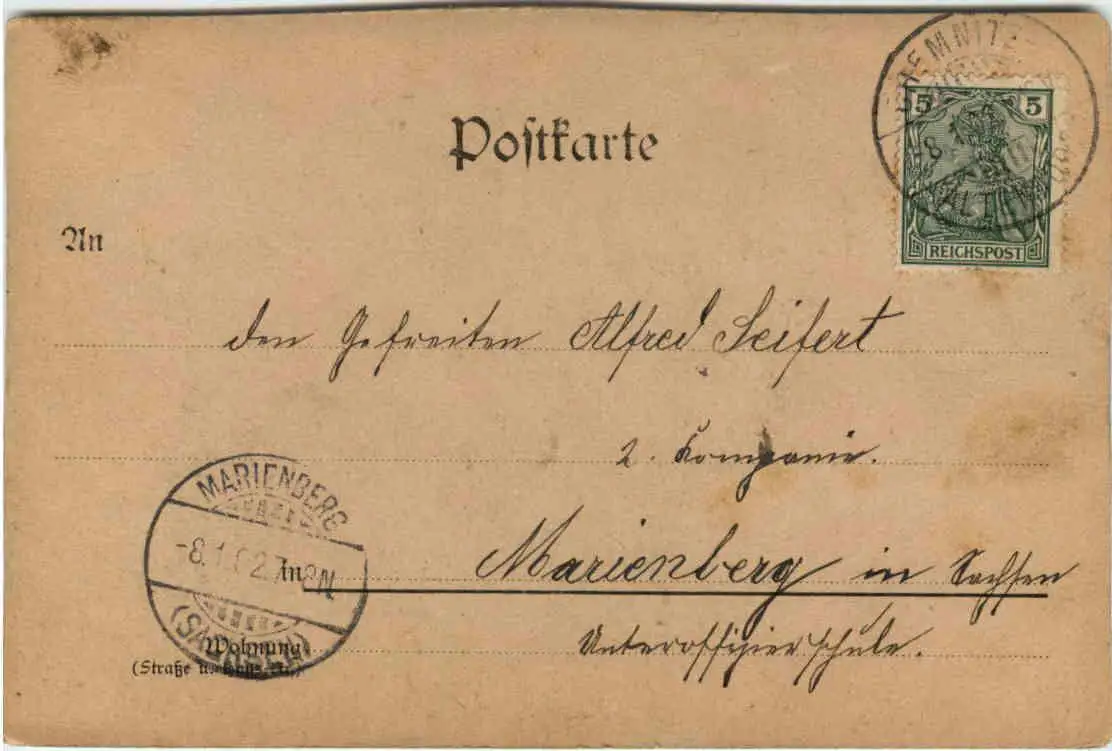 Postkarte
5 5
REICHSPOST
An
den Gefreiten Alfred Seifert
2. Kompanie.
MARIENBERG
-8.1.02.7-8N.
(SACHSEN)
In Marienberg in Sachsen
Unteroffizierschule.
Wohnung
(Straße u.